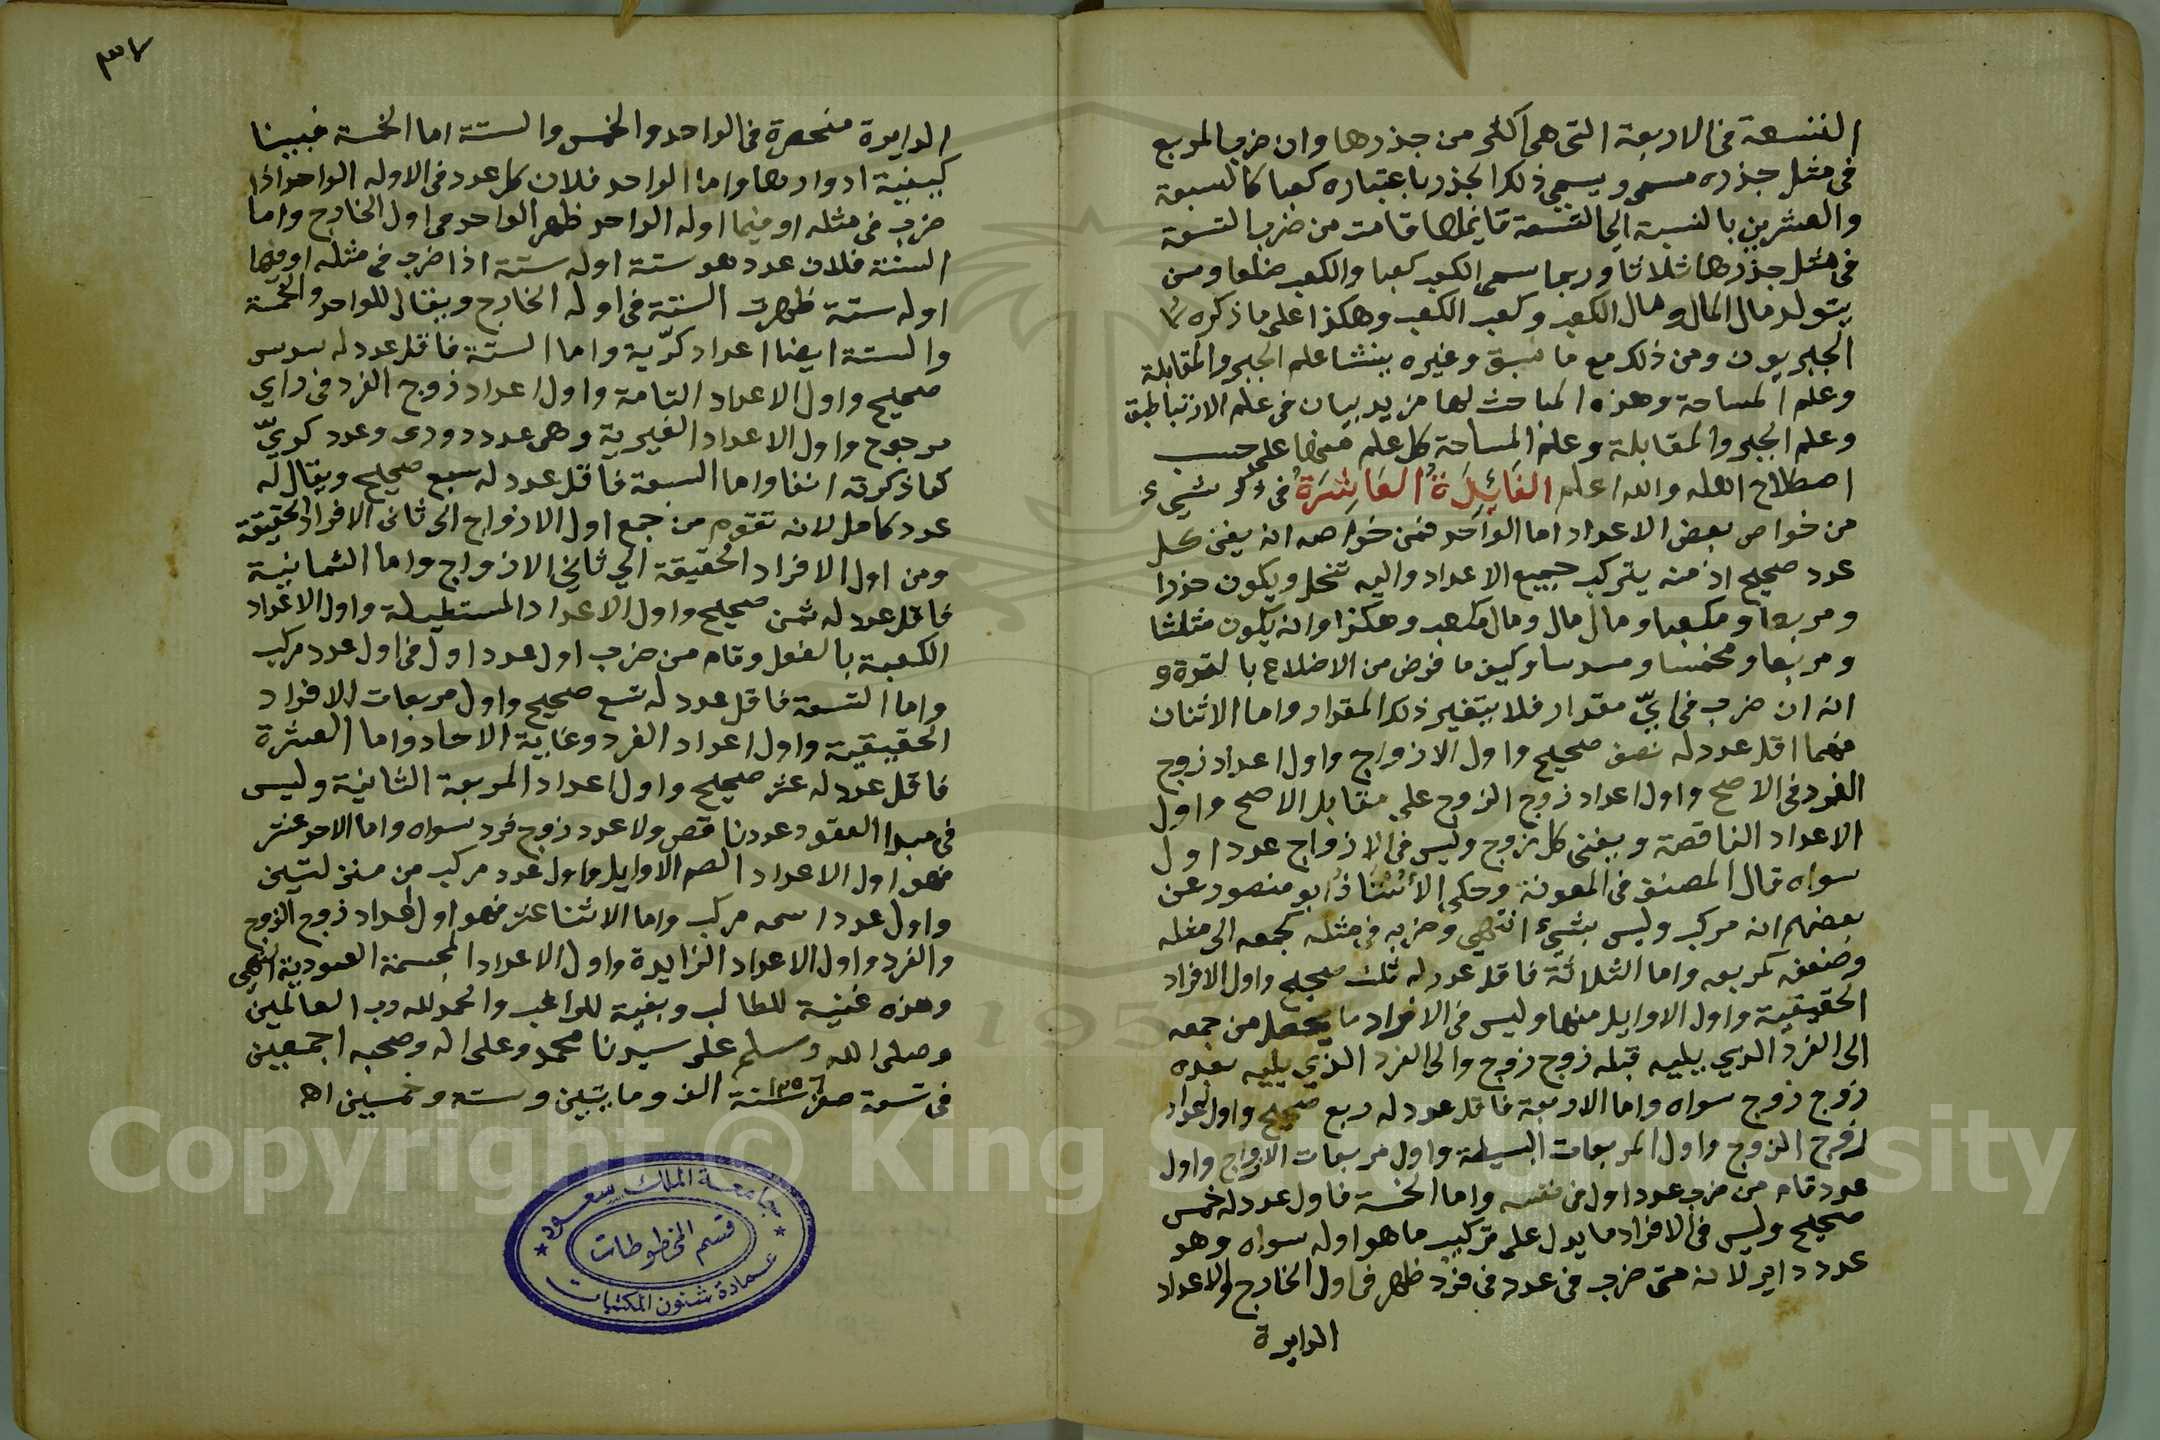 التسعة في الاربعة التي هي اكثر من جذرها وان ضرب المربع
في مثل جذره مسمى ويسمي ذلك الجذر باعتباره كعبا كالسبعة
والعشرين بالنسبة الي التسعة فانها قامت من ضرب التسعة
في مثل جذرها ثلاثا وربما سمى الكعب كعبا والكعب ضلعا ومن
يتولد مال المال ومال الكعب وكعب الكعب وهكذا على ما ذكره
الجبريون ومن ذلك مع ما سبق وغيره ينشا علم الجبر والمقابلة
وعلم المساحة وهذه المباحث لها مزيد بيان في علم الارتباطيق
وعلم الجبر والمقابلة وعلم المساحة كل علم منها على حسب
اصطلاح اهله والله اعلم الفَائِدَةُ العَاشِرَةُ في ذكر شيء
من خواص بعض الاعداد اما الواحد فمن خواصه انه يفني كل
عدد صحيح اذ منه يتركب جميع الاعداد واليه تنحل ويكون جذرا
ومربعا ومكعبا ومال مال ومال مكعب وهكذا وانه يكون مثلثا
ومربعا ومخمسا ومسدسا وكيف ما فرض من الاضلاع بالقوة و
انه ان ضرب في ايّ مقدار فلا يتغير ذلك المقدار واما الاثنان
فهما اقل عدد له نصف صحيح واول الازواج واول اعداد زوج
الفرد في الاصح واول اعداد زوج الزوج علي مقابل الاصح واول
الاعداد الناقصة ويفنى كل زوج وليس في الازواج عدد اول
سواه قال المصنف في المعونة وحكى الأستاذ ابو منصور عن
بعضهم انه مركب وليس بشيء انتهي وضربه في مثله كجمعه الى مثله
وضعفه كمربعه واما الثلاثة فاقل عدد له ثلث صحيح واول الافراد
الحقيقية واول الاوايل منها وليس في الافراد ما يحصل من جمعه
الى الفرد الذي يليه قبله زوج زوج والى الفرد الذي يليه بعده
زوج زوج سواه واما الاربعة فاقل عدد له ربع صحيح واول اعداد
زوج الزوج واول المربعات البسيطة واول مربعات الازواج واول
عدد قام من ضرب عدد اول في نفسه واما الخمسة فاول عدد له خمس
صحيح وليس في الافراد ما يدل على تركيب ما هو اوله سواه وهو
عدد داير لانه متى ضرب في عدد في فرد ظهر في اول الخارج والاعداد
الدايرة
٣٧
الدايرة منحصرة في الواحد والخمس والستة اما الخمسة فبينا
كيفية ادوارها واما الواحد فلان كل عدد في الاوله الواحد اذا
ضرب في مثله او فيما اوله الواحد ظهر الواحد في اول الخارج واما
الستة فلان عدد هو ستة اوله ستة اذا ضرب في مثله او فيما
اوله ستة ظهرت الستة في اوله الخارج ويقال للواحد والخمسة
والستة ايضا اعداد كرّية واما الستة فاقل عدد له سدس
صحيح واول الاعداد التامة واول اعداد زوج الفرد في راي
مرجوح واول الاعداد الغيرية وهي عدد دوري وعدد كريّ
كما ذكرته انفا واما السبعة فاقل عدد له سبع صحيح ويقال له
عدد كامل لانه تقوم من جمع اول الازواج الى ثاني الافراد الحقيقة
ومن اول الافراد الحقيقة الي ثاني الازواج واما الثمانية
فاقل عدد له ثمن صحيح واول الاعداد المستطيلة واول الاعداد
الكعبية بالفعل وقام من ضرب اول عدد اول في اول عدد مركب
واما التسعة فاقل عدد له تسع صحيح واول مربعات الافراد
الحقيقية واول اعداد الفرد وغاية الاحاد واما العشرة
فاقل عدد له عشر صحيح واول اعداد المربعة الثانية وليس
في مبدا العقود عدد ناقص ولا عدد زوج فرد سواه واما الاحد عشر
فهو اول الاعداد الصم الاوايل واول عدد مركب من منزلتين
واول عدد اسمه مركب واما الاثنا عشر فهو اول اعداد زوج الزوج
والفرد واول الاعداد الزايدة واول الاعداد المجسمة العمودية انتهى
وهذه غنية للطالب وبغية للراغب والحمد لله رب العالمين
وصلى الله وسلم على سيدنا محمد وعلى اله وصحبه اجمعين
في تسعة صفر ١٢٥٦ سنة الف ومايتين وسته وخمسين اه
جامعة الملك سعود
قسم المخطوطات
عمادة شئون المكتبات
Copyright © King Saud University
195